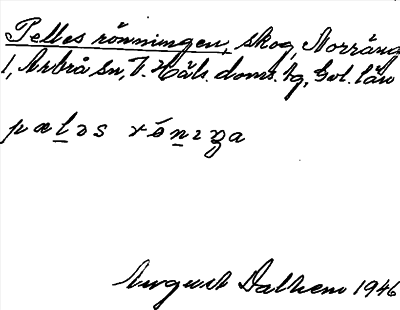 Pelles rönningen, skog, Norränge
1, Arbrå sn, V. Häls. doms. tg, Gvl. län
pæləs rönıŋa
August Dalhem 1946